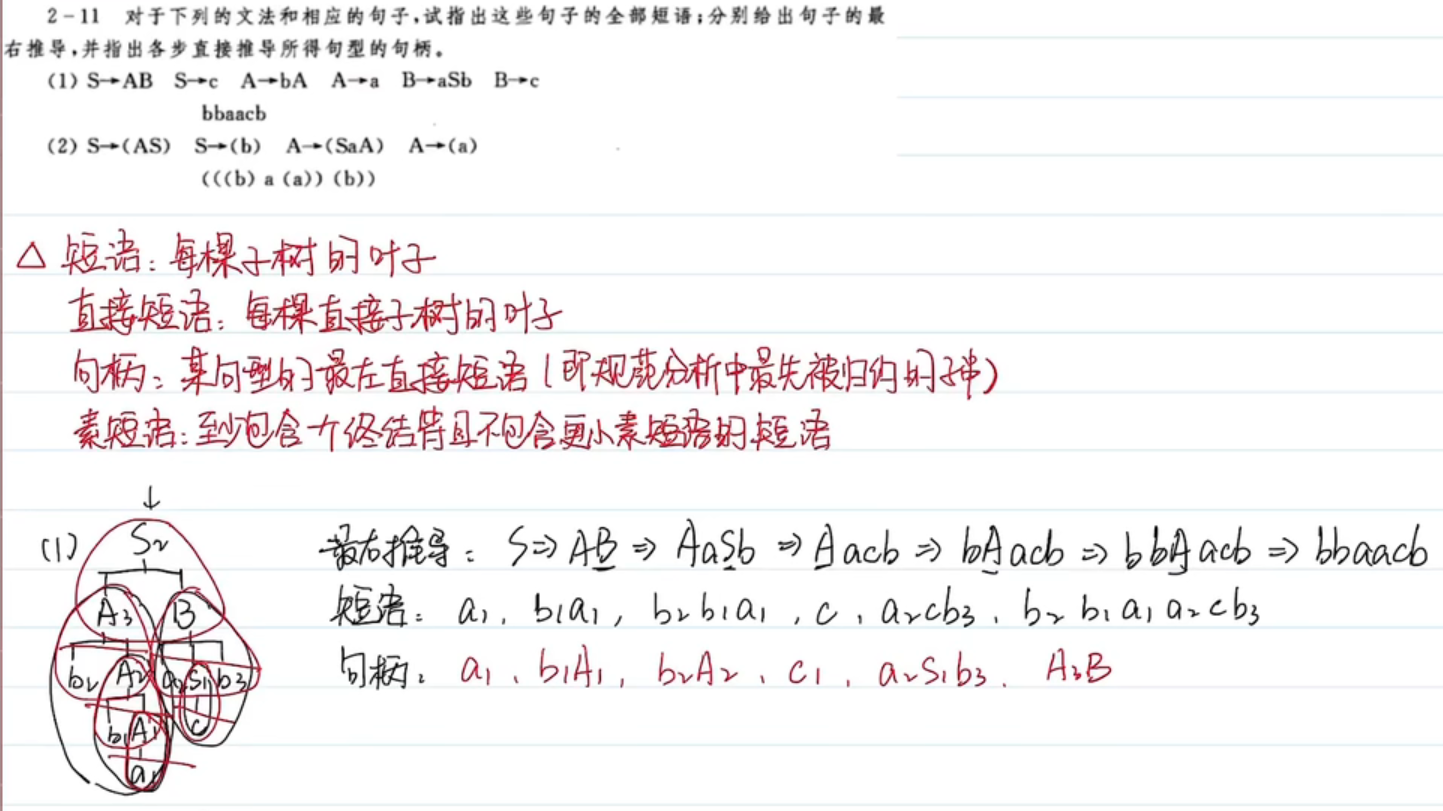 2-11 对于下列的文法和相应的句子,试指出这些句子的全部短语;分别给出句子的最
右推导,并指出各步直接推导所得句型的句柄。
(1) S→AB S→c A→bA A→a B→aSb B→c
bbaacb
(2) S→(AS) S→(b) A→(SaA) A→(a)
(((b) a (a)) (b))
△ 短语: 每棵子树的叶子
直接短语: 每棵直接子树的叶子
句柄: 某句型的最左直接短语 (即规范分析中最先被归约的子串)
素短语: 至少包含一个终结符且不包含更小素短语的短语
↓
(1) S₂ 最右推导: S⇒AB⇒AaSb⇒Aacb⇒bAacb⇒bbAacb⇒bbaacb
A₃ B 短语: a₁, b₁a₁, b₂b₁a₁, c, a₂cb₃, b₂b₁a₁a₂cb₃
b₂ A₂ a₂ S₁ b₃ 句柄: a₁, b₁A₁, b₂A₂, c₁, a₂S₁b₃, A₃B
b₁ A₁ c
a₁